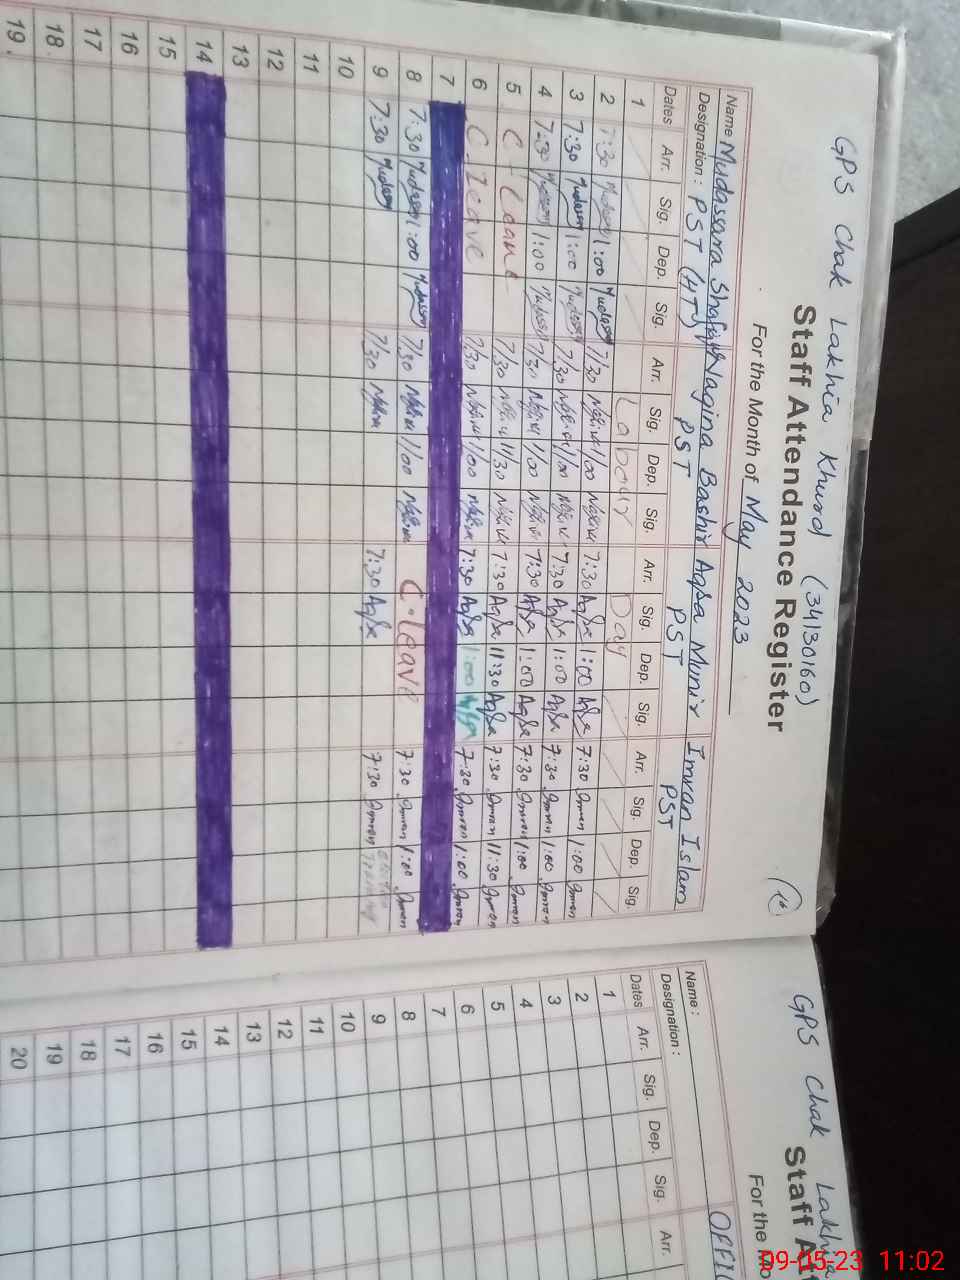 GPS Chak Lakhia Khurd (34130160)
16
Staff Attendance Register
For the Month of May 2023
Name Mudassara Shafique Nagina Bashir Aqsa Munir Imran Islam
Designation: PST (HT) PST PST PST
Dates Arr. Sig. Dep. Sig. Arr. Sig. Dep. Sig. Arr. Sig. Dep. Sig. Arr. Sig. Dep. Sig.
1 Labour Day
2 7:30 Mudassar 1:00 Mudassar 7:30 Nagina 1:00 Nagina 7:30 Aqsa 1:00 Aqsa 7:30 Imran 1:00 Imran
3 7:30 Mudassar 1:00 Mudassar 7:30 Nagina 1:00 Nagina 7:30 Aqsa 1:00 Aqsa 7:30 Imran 1:00 Imran
4 7:30 Mudassar 1:00 Mudassar 7:30 Nagina 1:00 Nagina 7:30 Aqsa 1:00 Aqsa 7:30 Imran 1:00 Imran
5 C. Leave 7:30 Nagina 11:30 Nagina 7:30 Aqsa 11:30 Aqsa 7:30 Imran 11:30 Imran
6 C. Leave 7:30 Nagina 1:00 Nagina 7:30 Aqsa 1:00 Aqsa 7:30 Imran 1:00 Imran
7
8 7:30 Mudassar 1:00 Mudassar 7:30 Nagina 1:00 Nagina C. Leave 7:30 Imran 1:00 Imran
9 7:30 Mudassar 7:30 Nagina 7:30 Aqsa 7:30 Imran Training
10
11
12
13
14
15
16
17
18.
19.
GPS Chak Lakhia
Staff At
For the Mo
OFFI
Name:
Designation:
Dates Arr. Sig. Dep. Sig. Arr.
1
2
3
4
5
6
7
8
9
10
11
12
13
14
15
16
17
18
19
20
09-05-23 11:02